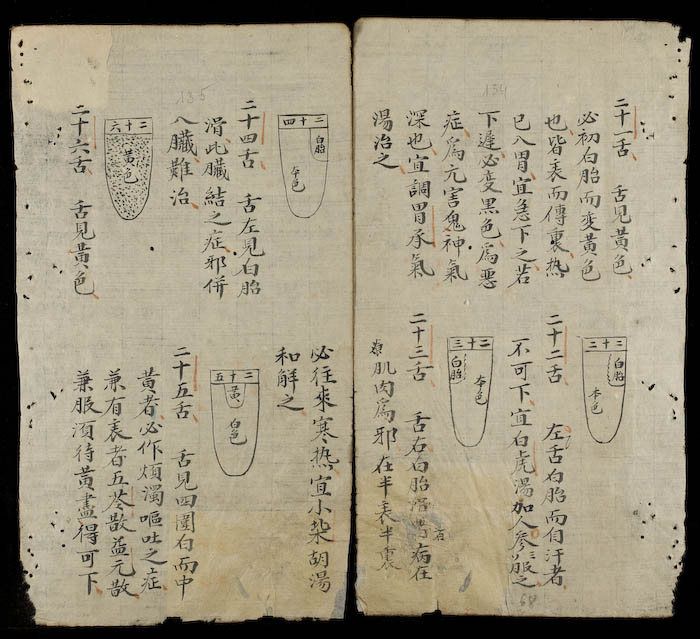 134
二十一舌 舌見黃色
必初白胎而变黃色
也皆表而傳裏熱
已八胃宜急下之若
下遲必变黑色爲恶
症爲亢害鬼神氣
深也宜調胃承氣
湯治之
二十二
白胎
本色
二十二舌 左舌白胎而自汗者
不可下宜白虎湯加人參三服之
二十三
本色
白胎
二十三舌 舌右白胎滑者病在
肌肉爲邪在半表半裏
135
必往來寒熱宜小柴胡湯
和解之
二十四
白胎
本色
二十四舌 舌左見白胎
滑此臟結之症邪併
八臟難治
二十五
黃
白色
二十五舌 舌見四圍白而中
黃者必作煩濁嘔吐之症
兼有表者五苓散益元散
兼服須待黃盡得可下
二十六
黃色
二十六舌 舌見黃色